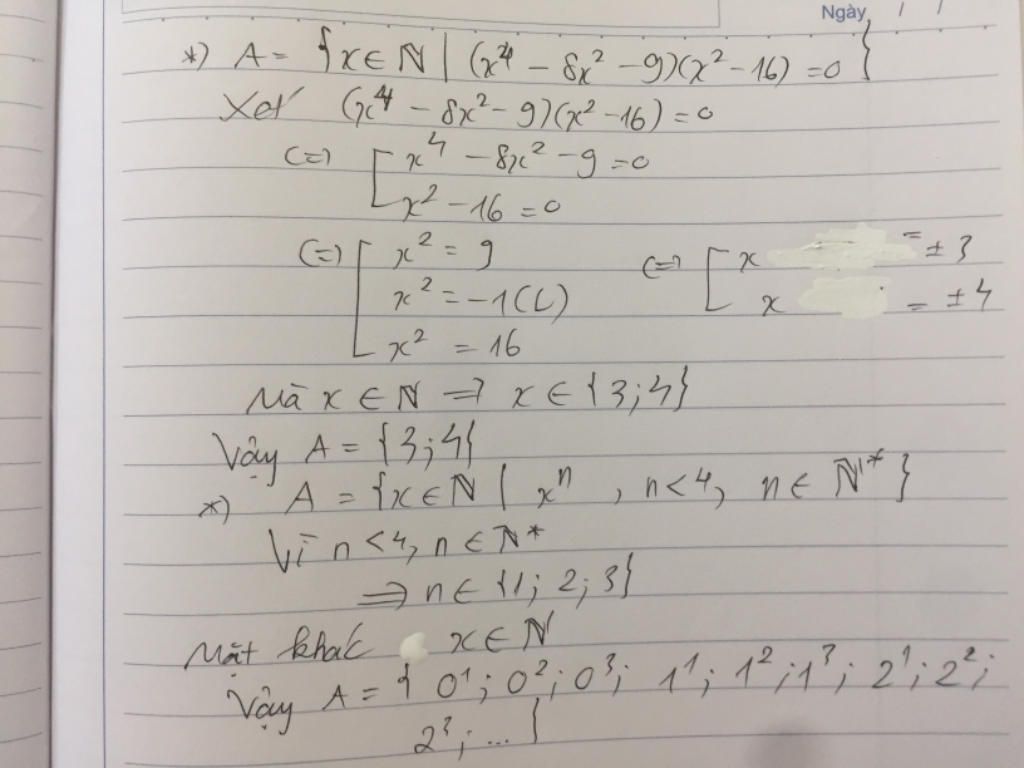 Ngày / /
*) A = {x ∈ ℕ | (x⁴ - 8x² - 9)(x² - 16) = 0}
Xét (x⁴ - 8x² - 9)(x² - 16) = 0
<=> [ x⁴ - 8x² - 9 = 0
x² - 16 = 0
<=> [ x² = 9 <=> [ x = ±3
x² = -1 (L) x = ±4
x² = 16
Mà x ∈ ℕ => x ∈ {3; 4}
Vậy A = {3; 4}
*) A = {x ∈ ℕ | xⁿ , n < 4, n ∈ ℕ*}
Vì n < 4, n ∈ ℕ*
=> n ∈ {1; 2; 3}
Mặt khác x ∈ ℕ
Vậy A = { 0¹; 0²; 0³; 1¹; 1²; 1³; 2¹; 2²;
2³; ... }